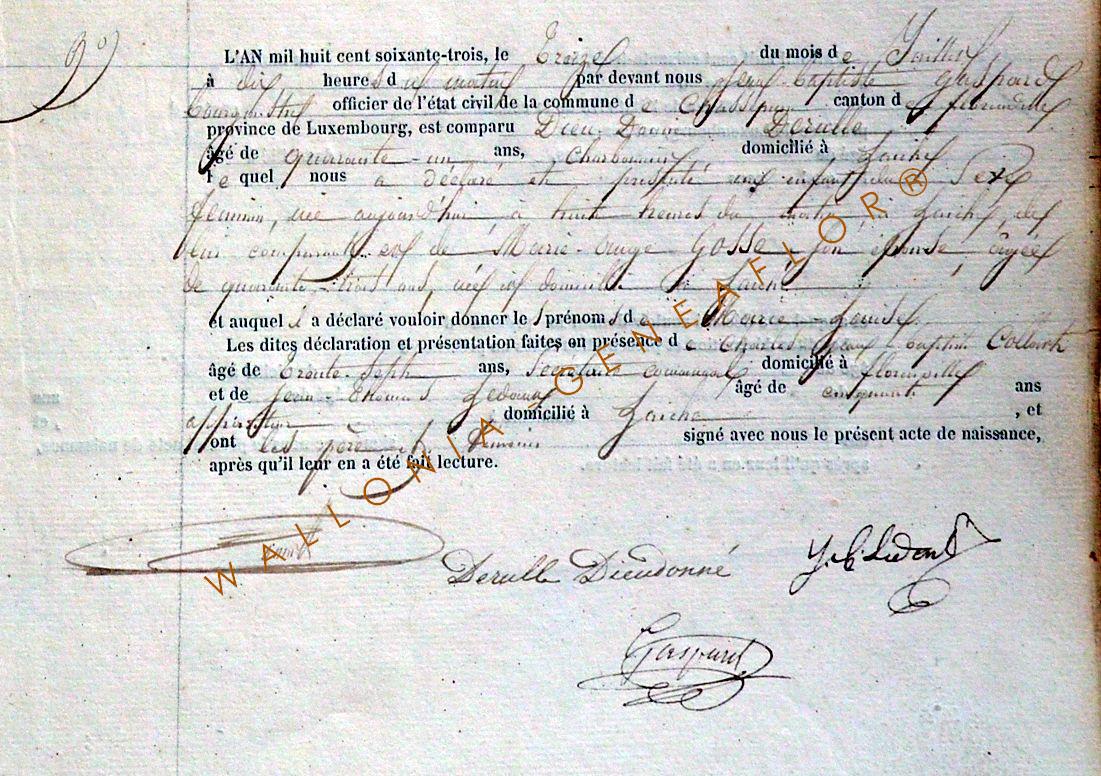 9°)
L'AN mil huit cent soixante-trois, le Treize du mois de Juillet
à dix heures du matin par devant nous Jean Baptiste Gaspard
Bourgmestre officier de l'état civil de la commune de Chassepierre canton de florenville
province de Luxembourg, est comparu Dieu-Donné Derulle
âgé de quarante-un ans, Charbonnier domicilié à Laiche
le quel nous a déclaré et présenté un enfant du Sexe
feminin, née aujourd'hui à huit heures du matin à Laiche de
lui comparant et de Marie-Ange Gosse son épouse âgée
de quarante-trois ans, née et domiciliée à Laiche
et auquel il a déclaré vouloir donner les prénoms de Marie-Louise
Les dites déclaration et présentation faites en présence de Charles Jean baptiste Collard
âgé de Trente-Sept ans, Secrétaire communal domicilié à florenville
et de Jean- Ledent âgé de cinquante ans
domicilié à Laiche , et
ont les père et témoins signé avec nous le présent acte de naissance,
après qu'il leur en a été fait lecture.
Derulle Dieudonné
Ledent
Gaspard
WALLONIA GENEAFLOR®